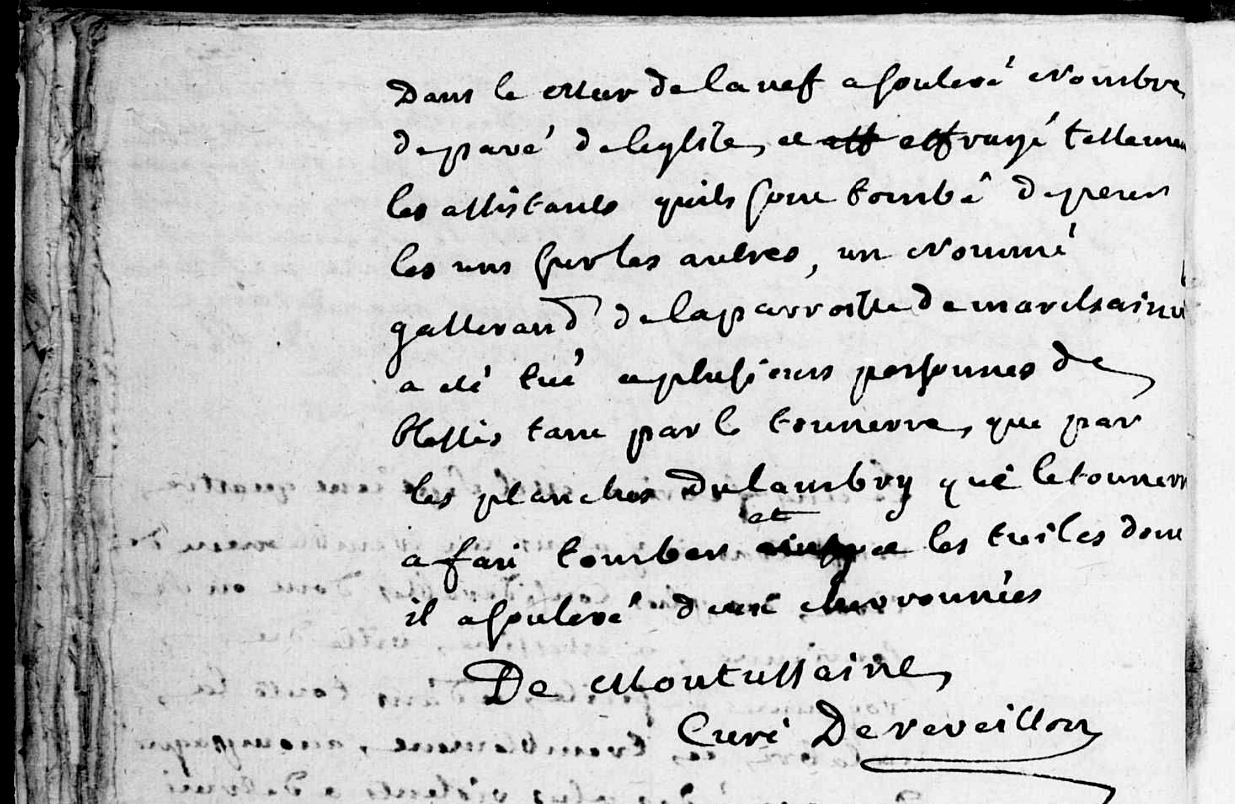 Dans le Mur de la nef a soulevé Nombre
de pavé de leglise, et eff effrayé tellemen
les assistants quils sont tombé de peur
les uns sur les autres, un Nommé
gallerand de la parroisse de marolsainu
a eté tué et plusieurs personnes de
blessés tant par le tonnerre, que par
les planches du lambry que le tonnerr
a fait tomber et les tuiles dont
il a soulevé deux chevronnées
De Montulsaint,
Curé De reveillon